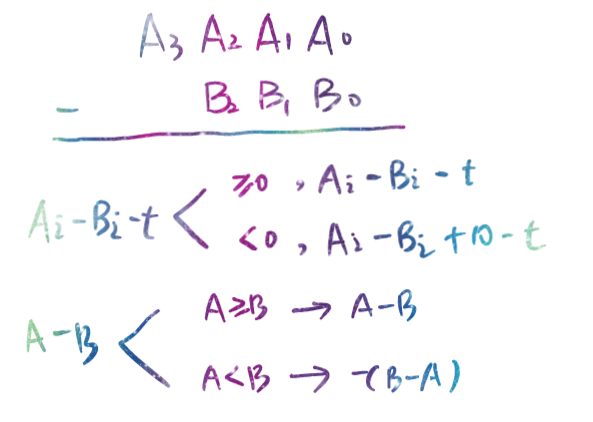 A₃ A₂ A₁ A₀
- B₂ B₁ B₀
Ai-Bi-t < ≥0, Ai-Bi-t
<0, Ai-Bi+10-t
A-B < A≥B → A-B
A<B → -(B-A)